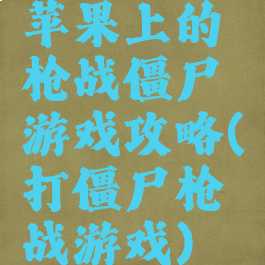 苹果上的
枪战僵尸
游戏攻略(
打僵尸枪
战游戏)